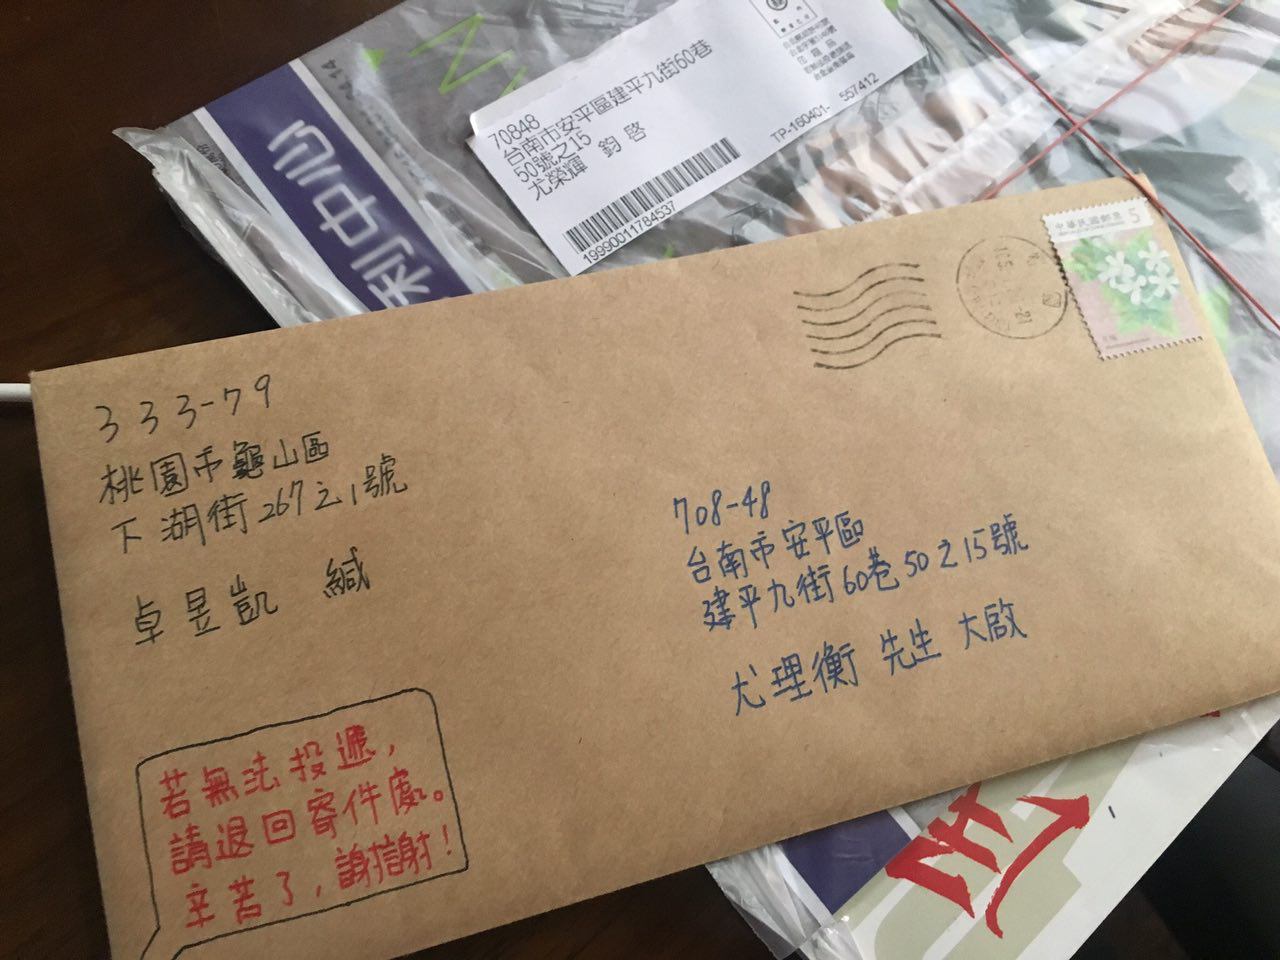 70848
台南市安平區建平九街60巷
50號之15
尤榮輝 鈞啓
19990011784537
TP-160401- 557412
中華民國郵票
5
333-79
桃園市龜山區
下湖街267之1號
卓昱凱 緘
708-48
台南市安平區
建平九街60巷50之15號
尤理衡 先生 大啟
若無法投遞，
請退回寄件處。
辛苦了，謝謝！